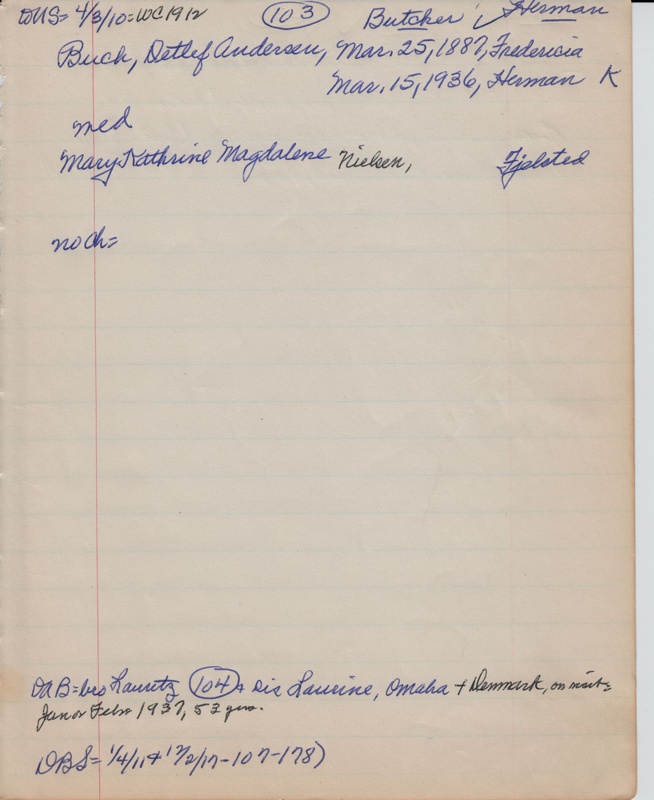 DUS= 4/3/10=WC1912 103 Butcher, Herman
Buch, Detlef Andersen, Mar. 25, 1887, Fredericia
Mar. 15, 1936, Herman K
med
Mary Kathrine Magdalene Nielsen, Fjelsted
no ch=
DAB=bro Lauretz 104 + sis Laurine, Omaha + Denmark, on visit=
Jan or Febr 1937, 53 yrs.
DBS= 1/4/11+ 12/2/17-107-178)